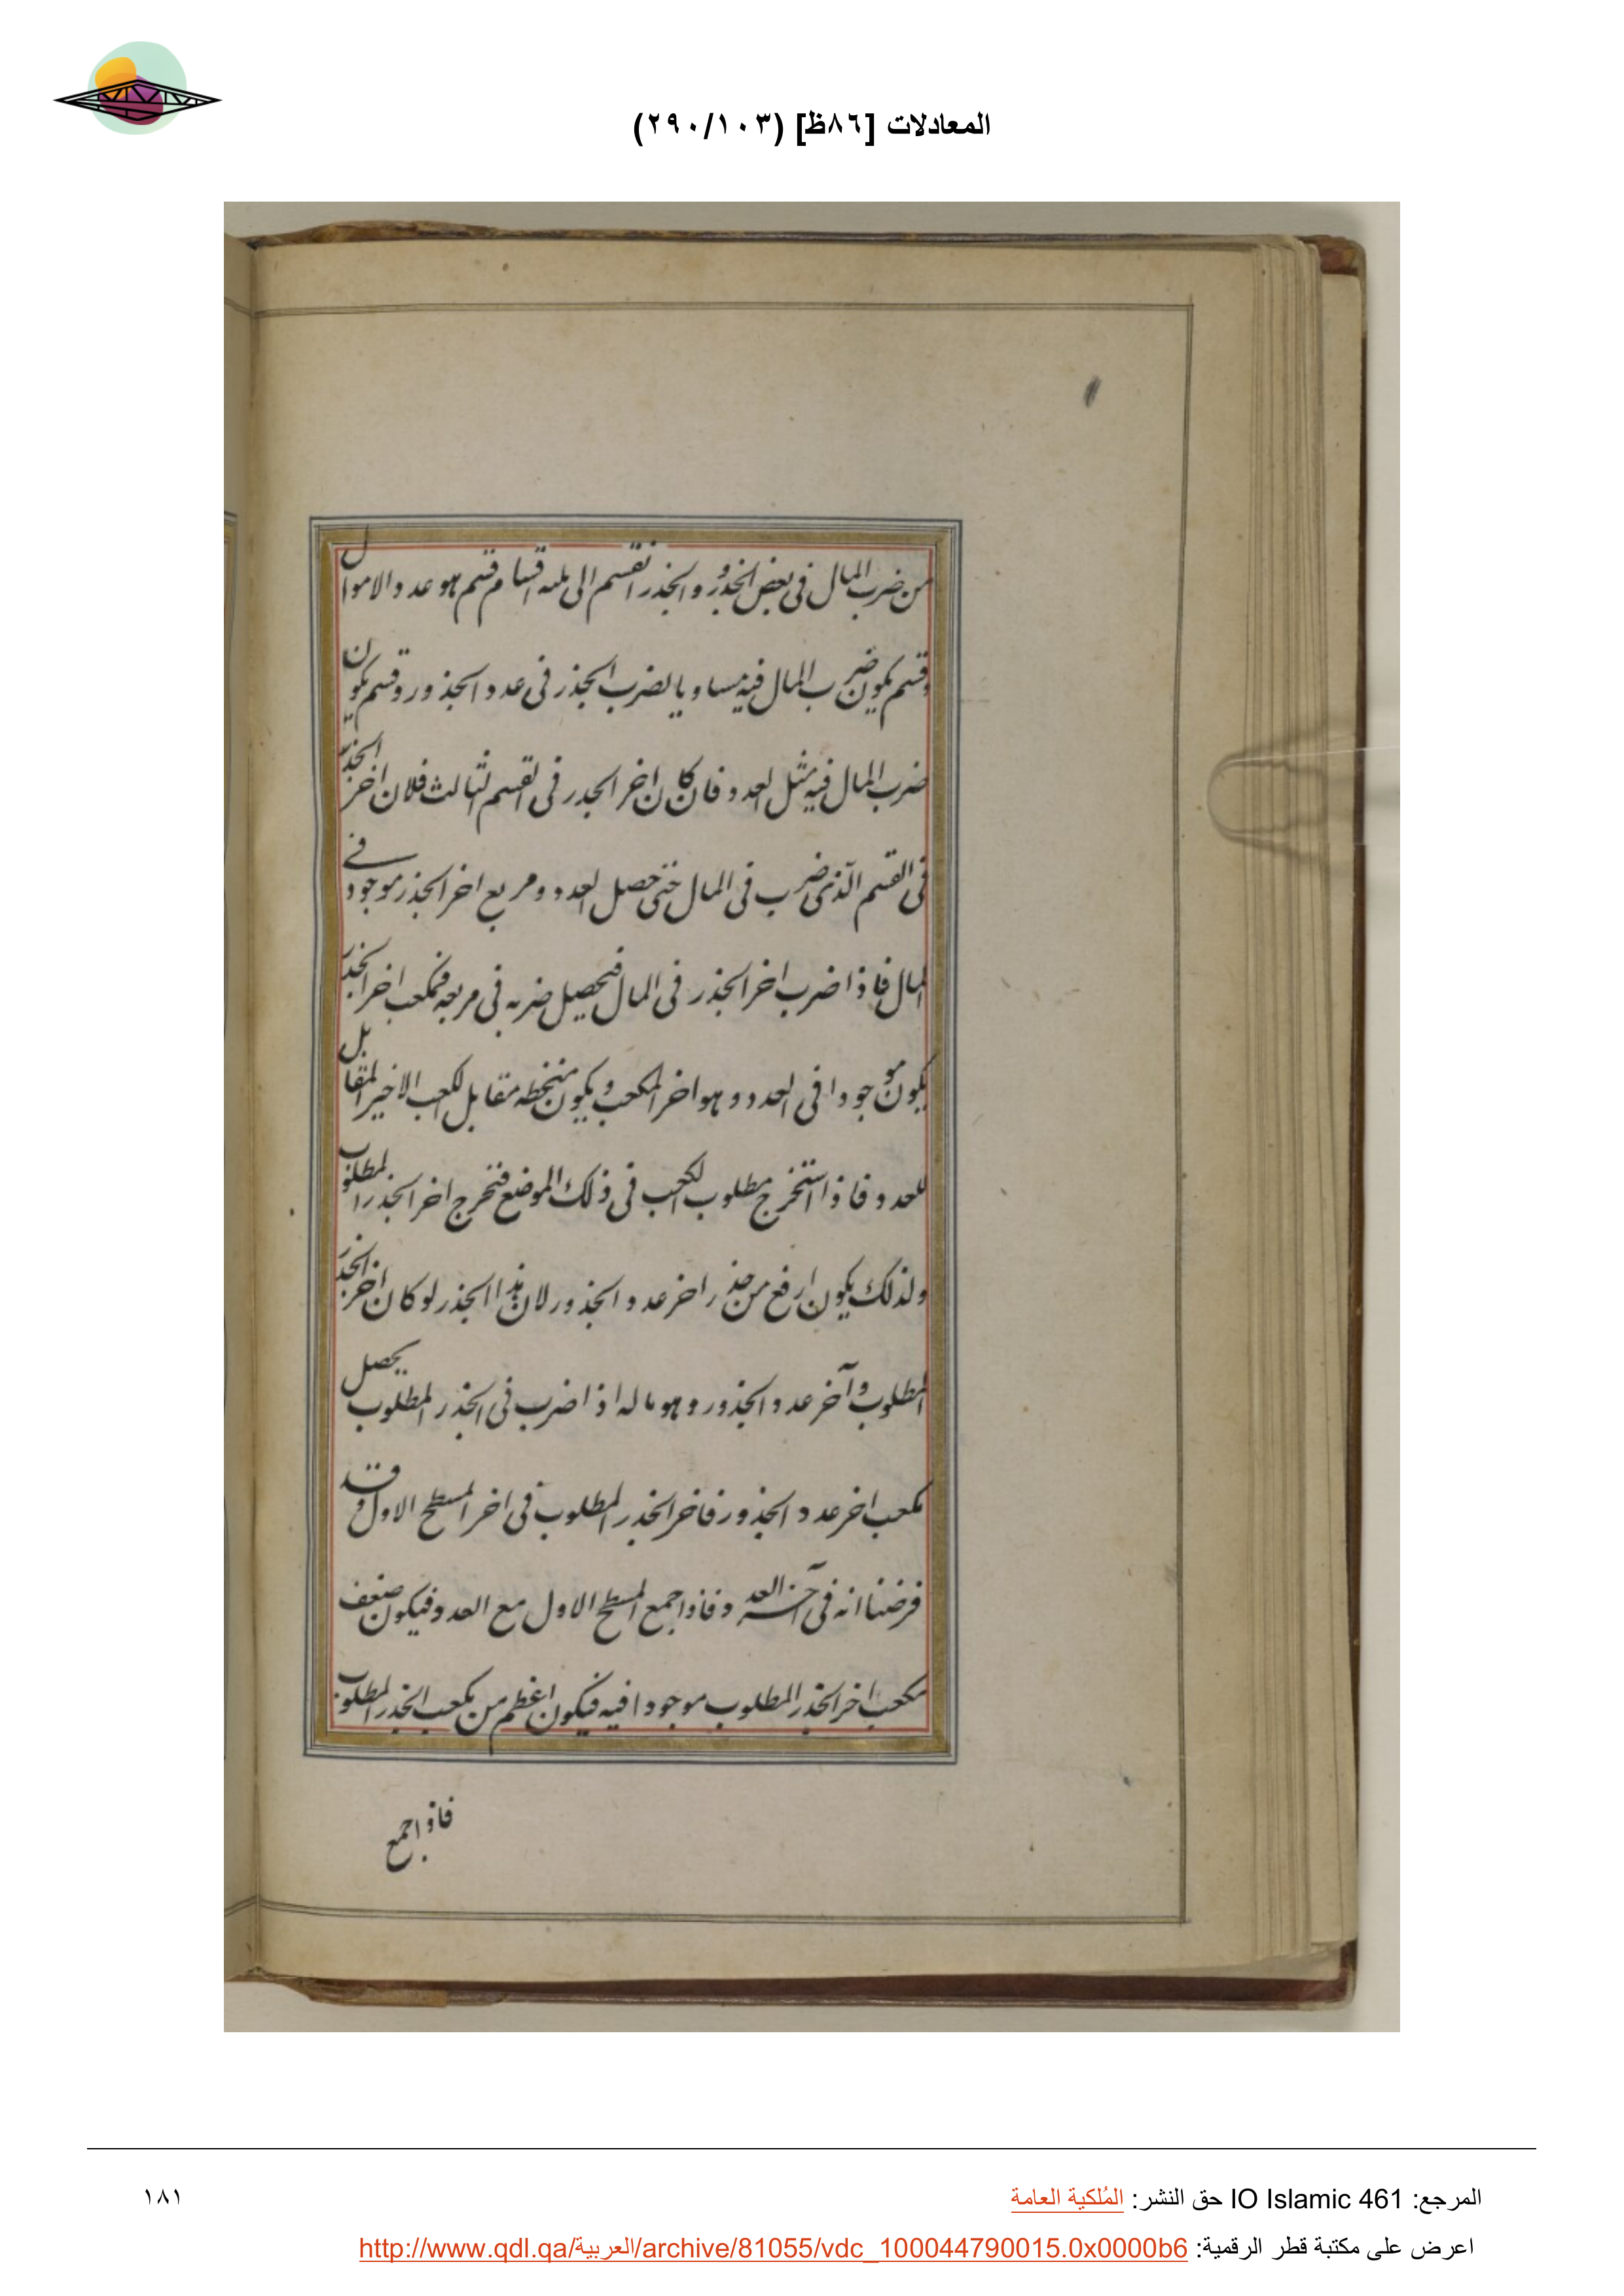 المعادلات [٨٦ظ] (٢٩٠/١٠٣)
من ضرب المال فى بعض الجذر والجذر انقسم الى ثلثه اقسام قسم هو عدد الاموال
وقسم يكون ضرب المال فيه مساويا لضرب الجذر فى عدد الجذور وقسم يكون
ضرب المال فيه مثل العدد فان كان اخر الجذر فى القسم الثالث فلان اخر الجذر
فى القسم الذى ضرب فى المال حتى حصل العدد ومربع اخر الجذر موجود فے
المال فاذا ضرب اخر الجذر فى المال فيحصل ضربه فى مربعه فمكعب اخر الجذر
يكون موجودا فى العدد وهو اخر المكعب ويكون منحطه مقابل لكعب الاخير المقابل
للعدد فاذا استخرج مطلوب الكعب فى ذلك الموضع فتخرج اخر الجذر المطلوب
ولذلك يكون ارفع من جذر اخر عدد الجذور لان هذا الجذر لو كان اخر الجذر
المطلوب وآخر عدد الجذور وهو ماله اذا ضرب فى الجذر المطلوب يحصل
مكعب اخر عدد الجذور فاخر الجذر المطلوب فى اخر المسطح الاول وقد
فرضنا انه فى آخر العدد فاذا جمع المسطح الاول مع العدد فيكون ضعف
مكعب اخر الجذر المطلوب موجودا فيه فيكون اعظم من مكعب الجذر المطلوب
فاذا جمع
المرجع: IO Islamic 461 حق النشر: المُلكية العامة
١٨١
اعرض على مكتبة قطر الرقمية: http://www.qdl.qa/العربية/archive/81055/vdc_100044790015.0x0000b6